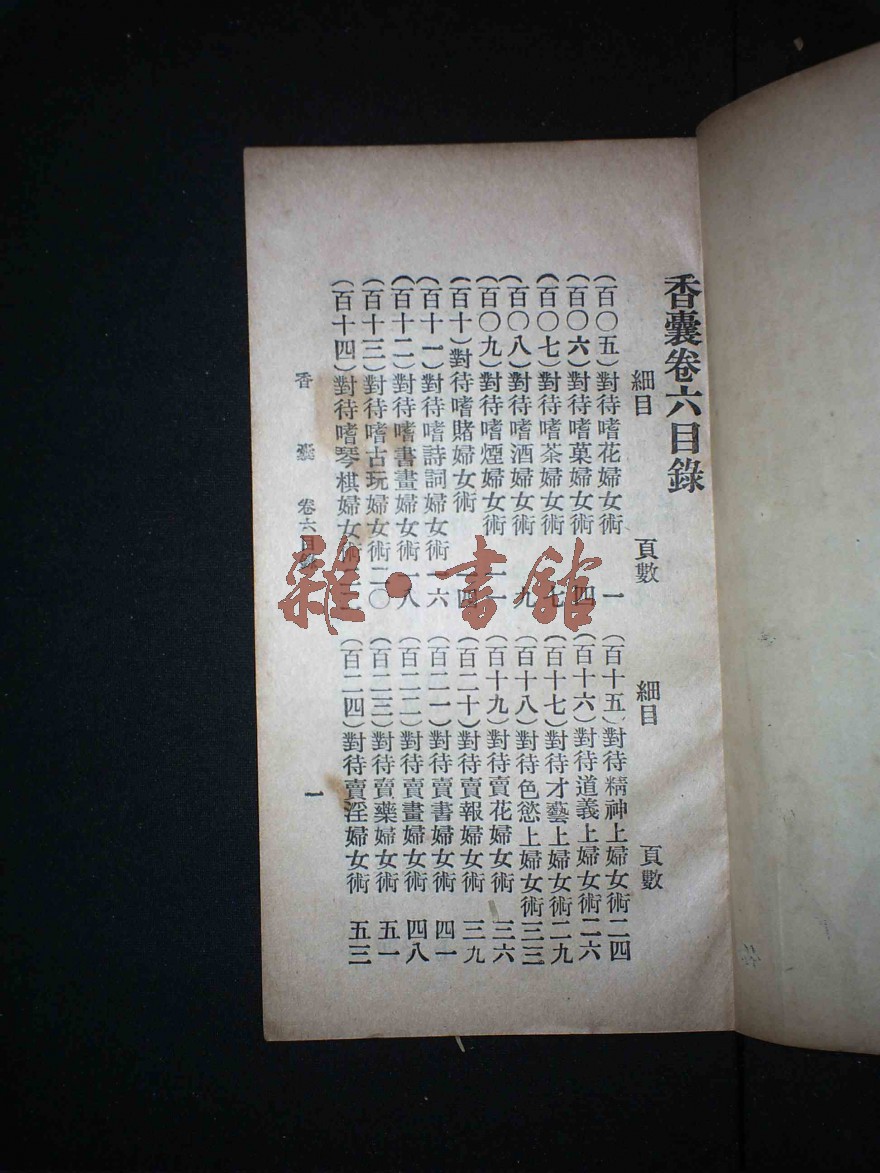 香囊卷六目錄
細目 頁數
(百〇五)對待嗜花婦女術 一
(百〇六)對待嗜菓婦女術 四
(百〇七)對待嗜茶婦女術 七
(百〇八)對待嗜酒婦女術 九
(百〇九)對待嗜煙婦女術 一一
(百十)對待嗜賭婦女術 一四
(百十一)對待嗜詩詞婦女術 一六
(百十二)對待嗜書畫婦女術 一八
(百十三)對待嗜古玩婦女術 二〇
(百十四)對待嗜琴棋婦女術
細目 頁數
(百十五)對待精神上婦女術 二四
(百十六)對待道義上婦女術 二六
(百十七)對待才藝上婦女術 二九
(百十八)對待色慾上婦女術 三三
(百十九)對待賣花婦女術 三六
(百二十)對待賣報婦女術 三九
(百二一)對待賣書婦女術 四一
(百二二)對待賣畫婦女術 四八
(百二三)對待賣藥婦女術 五一
(百二四)對待賣淫婦女術 五三
香囊 卷六目錄 一
雜·書館